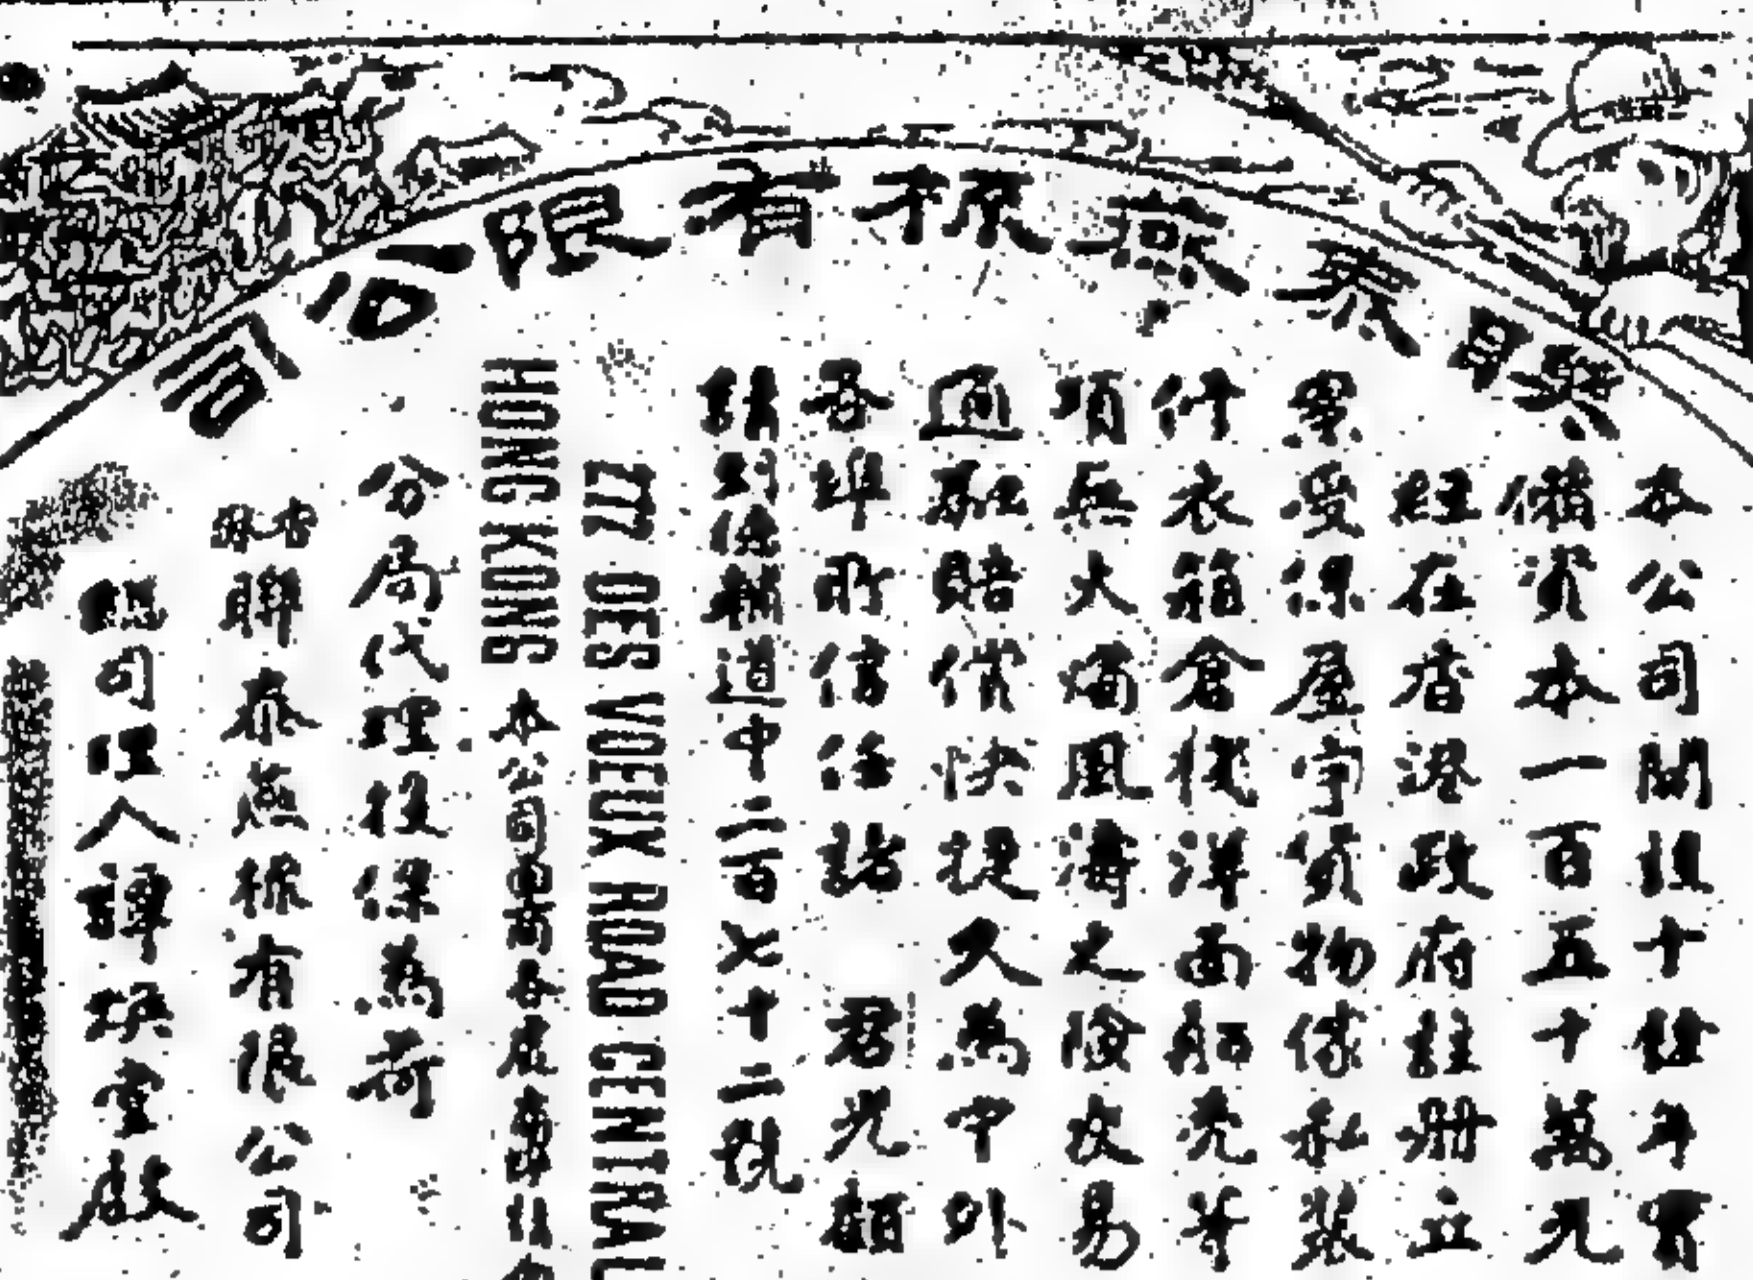 泰燕梳有限公司
本公司開設十餘年實
備資本一百五十萬元
經在香港政府註冊立
案受保屋宇貨物傢私裝
什衣箱倉棧洋面船壳等
項兵火燭風濤之險交易
通融賠償快捷久為中外
各埠所信任諸 君光顧
請到德輔道中二百七十二號
272 DES VOEUX ROAD CENTRAL
HONG KONG 本公司
分局代理投保為荷
香港聯泰燕梳有限公司
總司理人譚煥堂啟